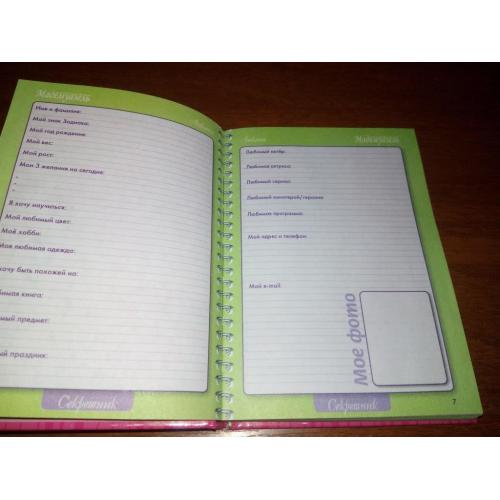 Мадемуазель
Имя и фамилия:
Мой знак Зодиака:
Мой год рождения:
Мой вес:
Мой рост:
Мои 3 желания на сегодня:
Я хочу научиться:
Мой любимый цвет:
Моё хобби:
Моя любимая одежда:
хочу быть похожей на:
бимая книга:
мый предмет:
ый праздник:
Секретник
Мадемуазель
Любимый актёр:
Любимая актриса:
Любимый сериал:
Любимый киногерой/героиня:
Любимая программа:
Мой адрес и телефон:
Мой e-mail:
Мое фото
Секретник
7